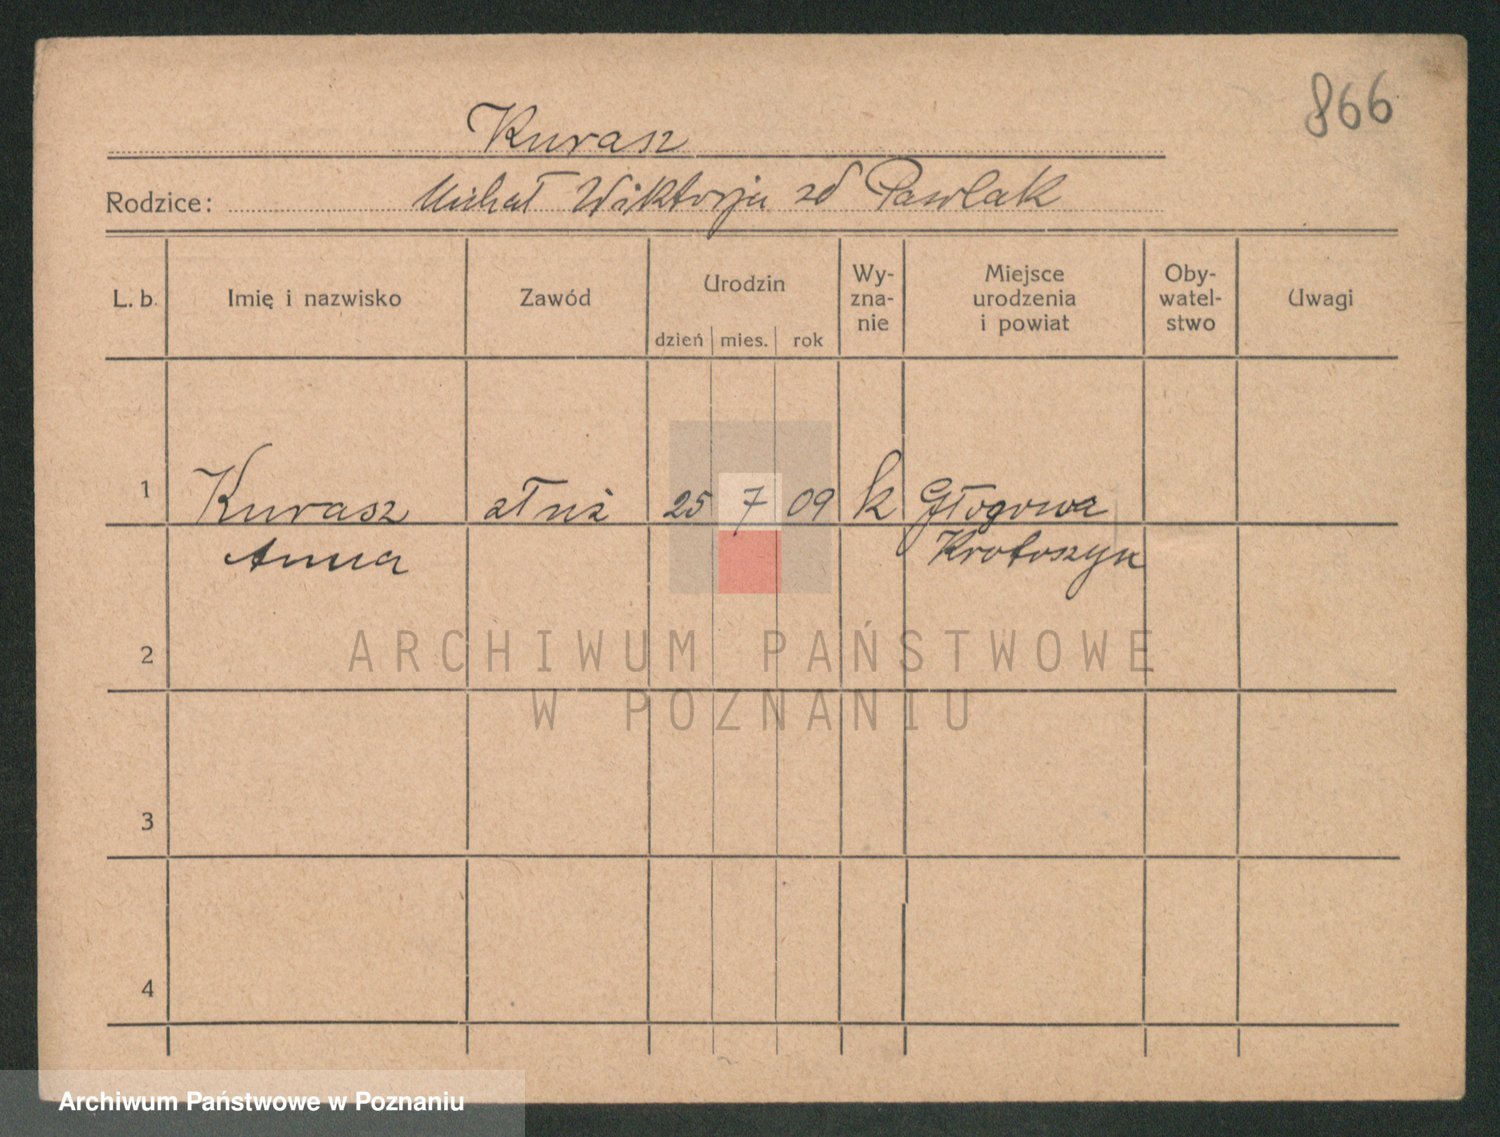 866
Kurasz
Rodzice: Michał Wiktorja zd Pawlak
L. b. Imię i nazwisko Zawód Urodzin dzień mies. rok Wy-zna-nie Miejsce urodzenia i powiat Oby-watel-stwo Uwagi
1 Kurasz służ 25 7 09 k Głogowa
Anna Krotoszyn
2
ARCHIWUM PAŃSTWOWE
W POZNANIU
3
4
Archiwum Państwowe w Poznaniu